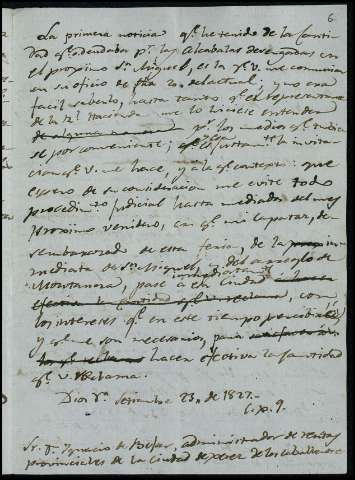 6
La primera noticia q.e he tenido de la Canti-
dad q.e adeudaba p.r las Alcabalas devengadas en
el proximo S.n Miguel, es la q.e V. me comunica
en su oficio de fha 20 del actual; y no era
facil saberlo, hasta tanto q.e el
de la R.l Hacienda me lo hiciese entender
de alguna manera p.r los medios q.e
se por conveniente;
cion q.e V. me hace, y a la q.e contexto: que
espero de su consideración me evite todo
procedim.to judicial hasta mediados del mes
proximo venidero, en q.e
sembarazado de esta feria, de la
mediata de S.n Miguel, y del arreglo de
Montanera, pase a esa Ciudad
efectiva la cantidad q.e V. reclama, con
los intereses q.e en este tiempo
y q.e me son necesarios, para
hacer efectiva la cantidad
q.e V. reclama.
Dios g.e Setiembre 23 de 1827.
Sr. D.n Ignacio de Befar, administrador de rentas
provinciales de la Ciudad de Xerez de los Caballeros